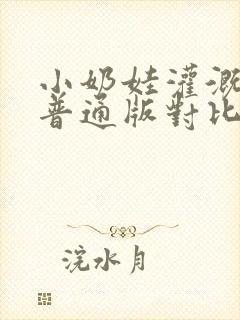 小奶娃灌溉
普通版對比
浣水月